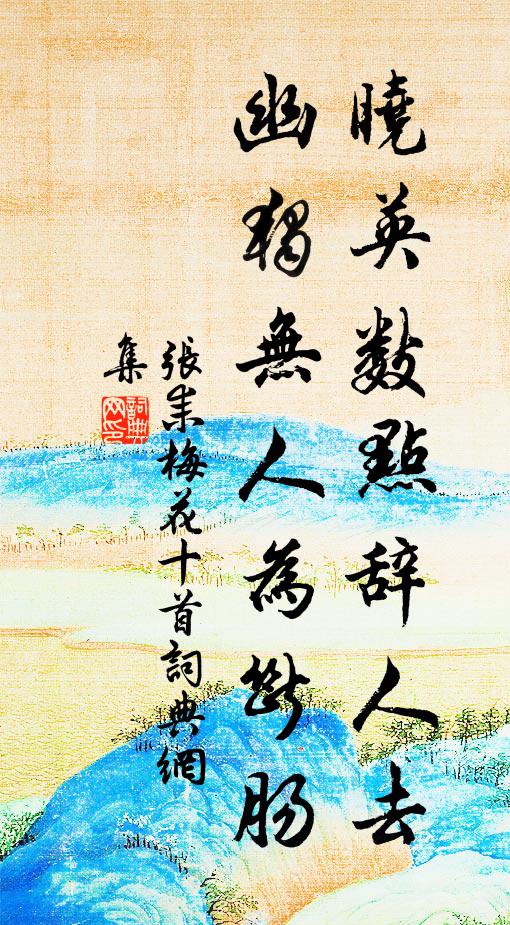 曉英数點辞人去
幽獨無人為斷肠
張耒梅花十首詞典網
集
詞典网印